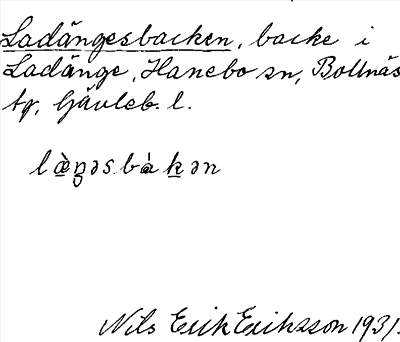 Ladängesbacken, backe i
Ladänge, Hanebo sn, Bollnäs
tg, Gävleb. l.
læ̀ŋəsbàkən
Nils Erik Eriksson 1931.